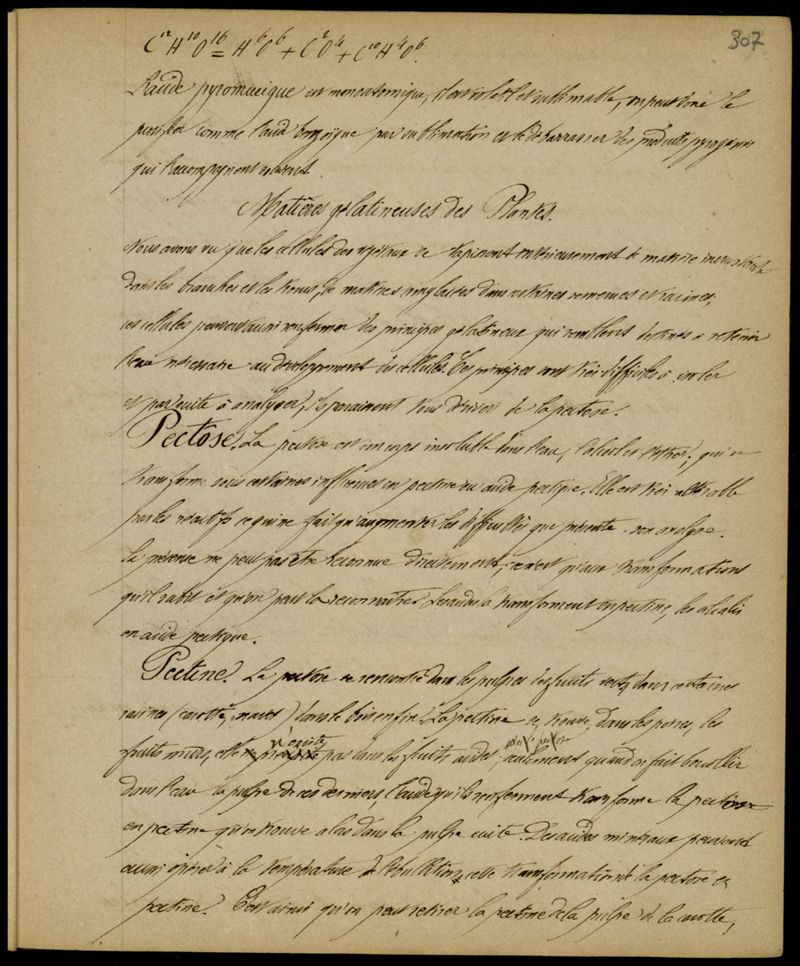 307
C¹²H¹⁰O¹⁶ = H⁶O⁶ + C²O⁴ + C¹⁰H⁴O⁶.
L'acide pyromucique est monoatomique, il est volatil et sublimable, on peut donc le
purifier comme l'acide benzoïque par sublimation et le débarrasser des produits pyrogénés
qui l'accompagnent souvent.
Matières gélatineuses des Plantes.
Nous avons vu que les cellules des végétaux se tapissent intérieurement de matière incrustante
dans les branches et les troncs, de matières amylacées dans certaines semences et racines,
ces cellules peuvent aussi renfermer des principes gélatineux qui semblent destinés à retenir
l'eau nécessaire au développement des cellules. Ces principes sont très difficiles à isoler
et par suite à analyser, ils paraissent tous dériver de la pectose.
Pectose. La pectose est un corps insoluble dans l'eau, l'alcool et l'éther; qui se
transforme sous certaines influences en pectine ou acide pectique. Elle est très altérable
par les réactifs ce qui ne fait qu'augmenter les difficultés que présente son analyse.
Sa présence ne peut pas être reconnue directement, ce n'est qu'aux transformations
qu'il subit et qu'on peut la reconnaître. Les acides la transforment en pectine, les alcalis
en acide pectique.
Pectine. La pectose se rencontre dans les pulpes des fruits verts, dans certaines
racines (carotte, navets) dans le bois enfin. La pectine se trouve, dans les poires, les
fruits murs, elle n'existe pas dans les fruits acides; seulement quand on fait bouillir
dans l'eau la pulpe de ces derniers, l'acide qu'ils renferment transforme la pectose
en pectine qu'on trouve alors dans la pulpe cuite. Des acides minéraux peuvent
aussi opérer à la température d'ébullition cette transformation de la pectose en
pectine. C'est ainsi qu'on peut retirer la pectine de la pulpe de la carotte,